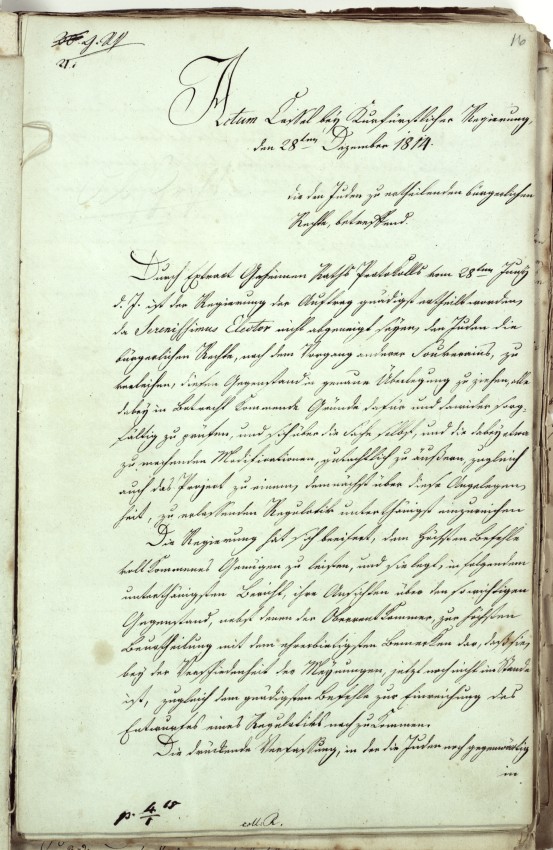 16
Actum Cassel bey Kurfürstlicher Regierung,
den 28ten Dezember 1814.
die den Juden zu ertheilenden bürgerlichen
Rechte, betreffend.
Durch Extract Geheimen Raths Protokolls vom 28ten Juny
d. J. ist der Regierung der Auftrag gnädigst ertheilt worden,
da Serenissimus Elector nicht abgeneigt seyen, den Juden die
bürgerlichen Rechte, nach dem Vorgang anderer Souverains, zu
verleihen, diesen Gegenstand in genaue Überlegung zu ziehen, alle
dabey in Betracht kommende Gründe dafür und dawider sorg-
fältig zu prüfen, und sich über die Sache selbst, und die dabey etwa
zu machenden Modificationen, gutachtlich zu äußern, zugleich
auch das Project zu einem, demnächst über diese Angelegen-
heit, zu erlassenden Regulativ unterthänigst einzureichen
Die Regierung hat sich beeifert, dem Höchsten Befehle
vollkommenes Genügen zu leisten, und sie legt, in folgendem
unterthänigsten Bericht, ihre Ansichten über den so wichtigen
Gegenstand, nebst denen der Oberrentkammer, zur höchsten
Beurtheilung mit dem ehrerbietigsten Bemerken dar, daß sie,
bey der Verschiedenheit der Meynungen, jetzt noch nicht im Stande
ist, zugleich dem gnädigsten Befehle zur Einreichung des
Entwurfes eines Regulativs nachzukommen.
Die drückende Verfassung, in der die Juden noch gegenwärtig
in
p. 4/1